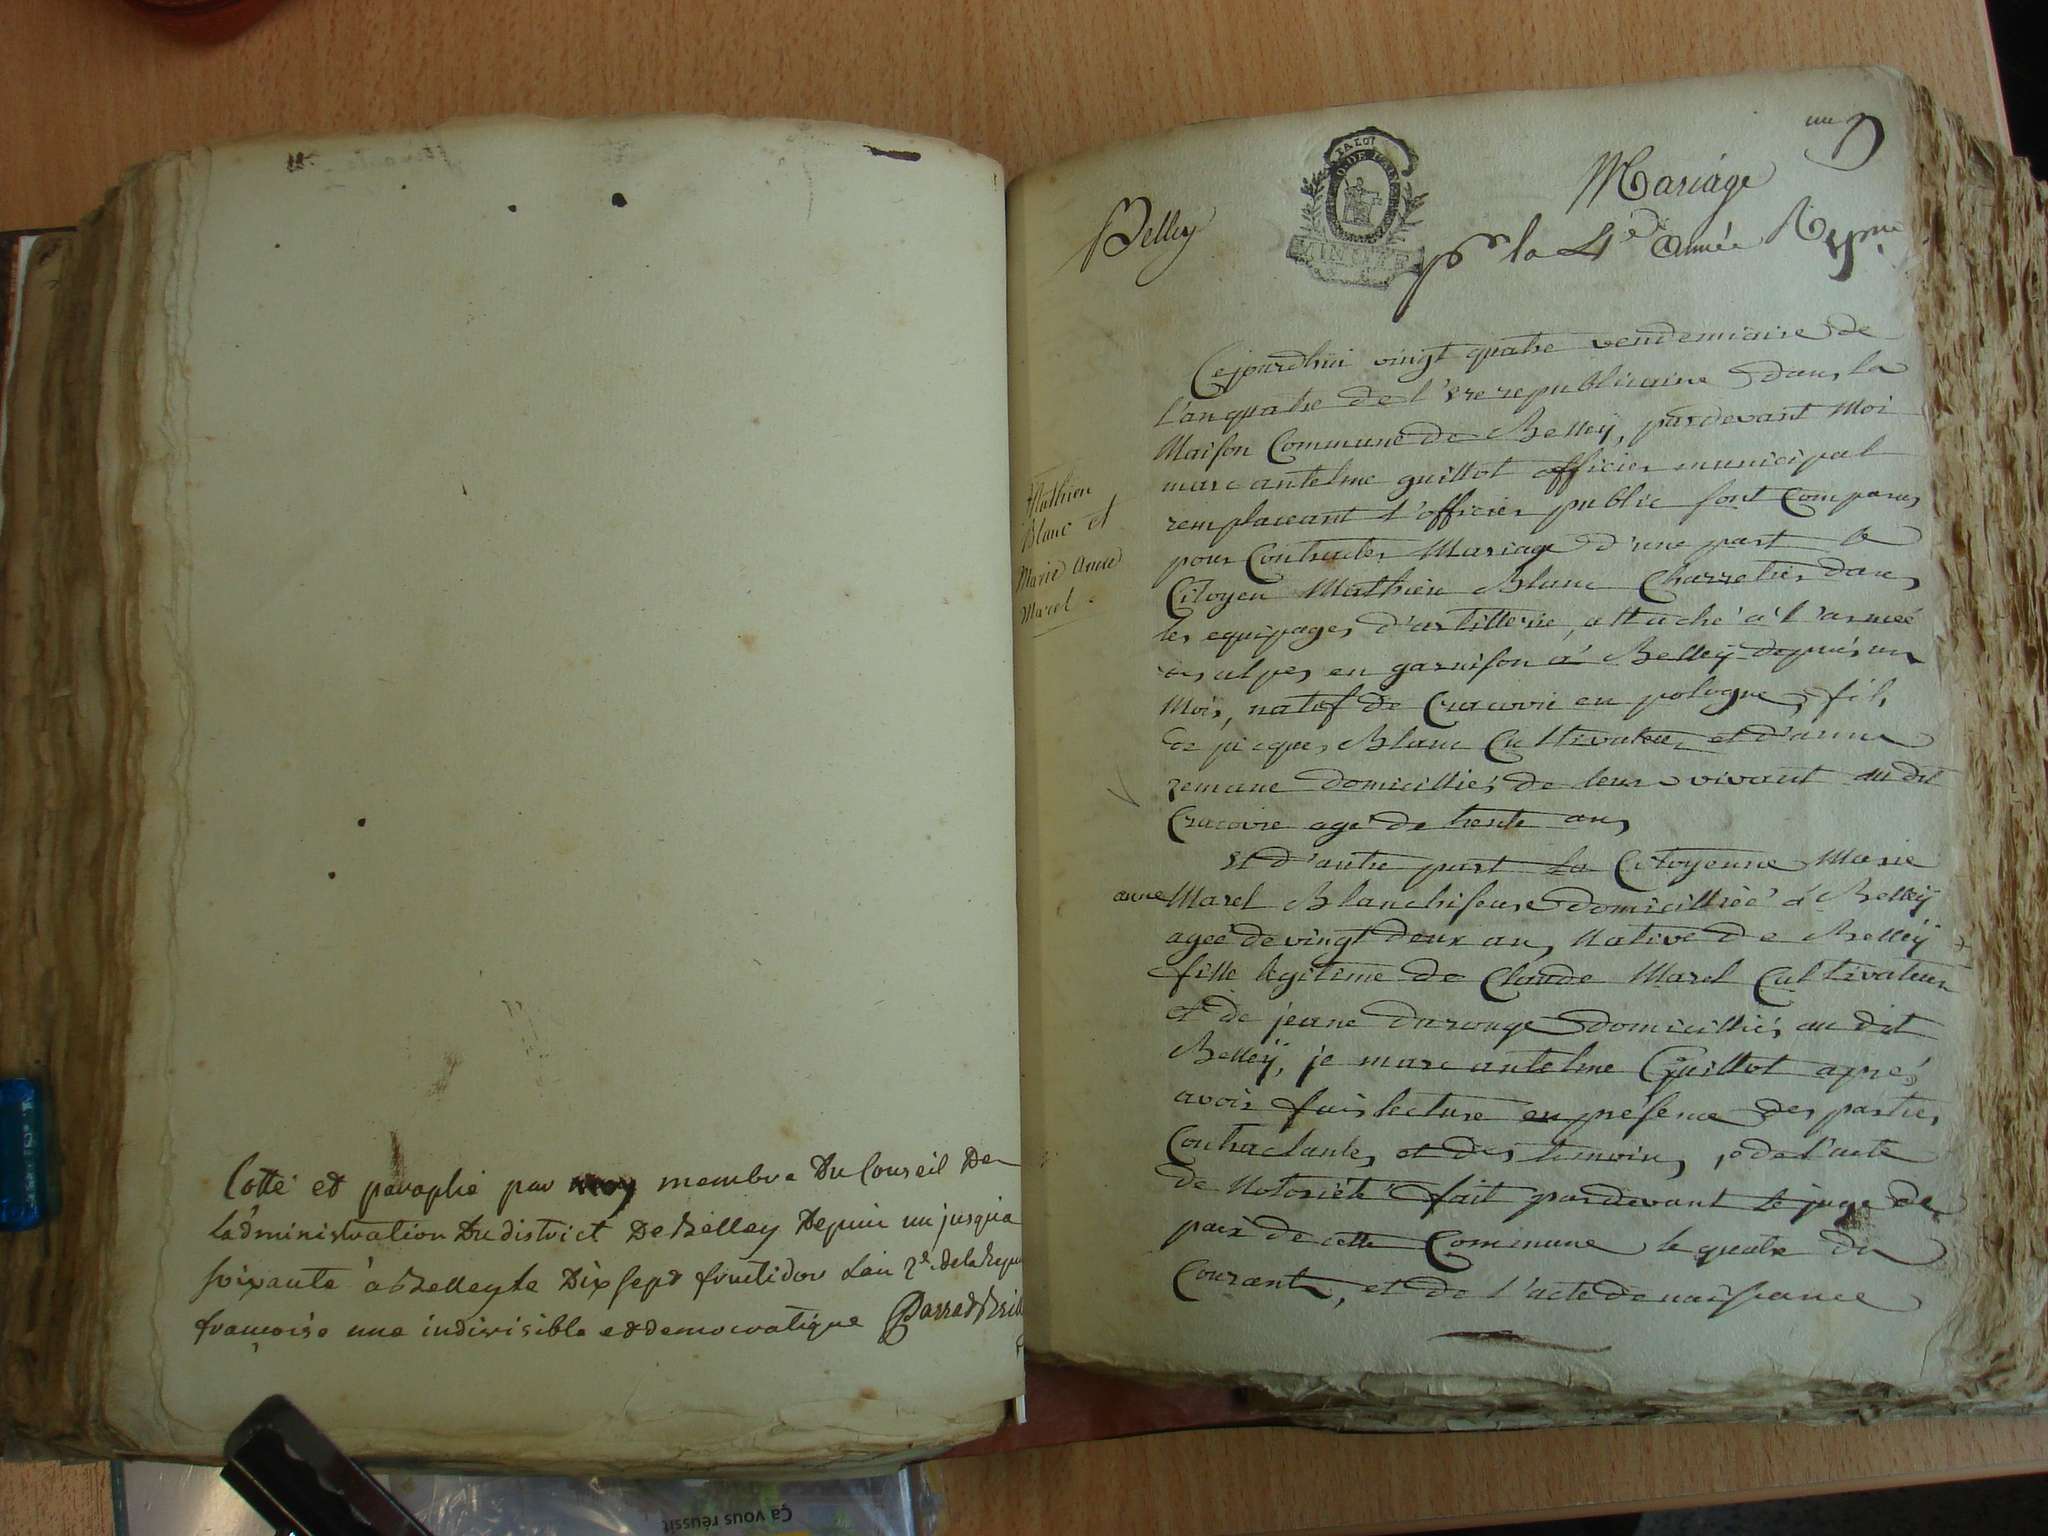 Cotté et paraphé par moy membre Du Conseil De
Ladministration Du district De Belley Depuis un jusqu'a
soixante à Belley le Dix sept fructidor L'an 3e. de la Repu
françoise une indivisible et democratique
un
Mariage
Belley
LA LOI
MINUTE
pr la 4e Année
Mathieu
Blanc et
Marie Anne
Marel.
Cejourdhui vingt quatre vendemiaire de
l'an quatre de l'ere republicaine dans la
Maison Commune de Belleÿ, pardevant Moi
marc antelme guillot officier municipal
remplaceant l'officier public sont Comparus
pour Contracter Mariage d'une part le
Citoyen Mathieu Blanc Charretier dans
les equipages d'artillerie, attaché à l'armeé
des alpes en garnison à Belleÿ depuis un
Mois, natif de Cracovie en pologne, fils
de jacques Blanc Cultivateur et d'anne
zemane domicilliés de leur vivant au dit
Cracovie agé de trente ans
Et d'autre part la Citoyenne Marie
anne Marel Blanchiseuse domicilliéé à Belleÿ
ageé de vingt deux ans Native de Belleÿ
fille legitime de Claude Marel Cultivateur
et de jeane Durouge domicilliés au dit
Belleÿ, je marc antelme Guillot aprés
avoir fais lecture en présence des parties
Contractantes et des temoins, de l'acte
de Notoriété fait pardevant le juge de
paix de cette Commune le quatre du
Courant, et de l'acte de naissance
Ça vous réussit